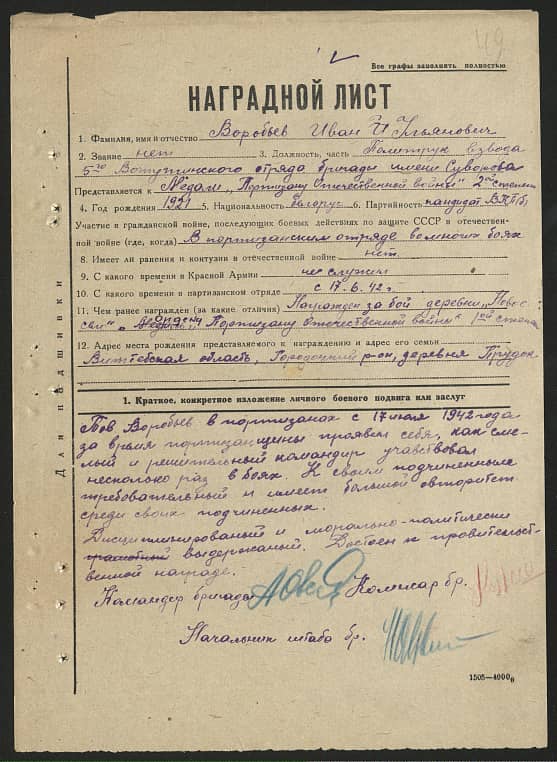 49
Все графы заполнять полностью
НАГРАДНОЙ ЛИСТ
1. Фамилия, имя и отчество Воробьев Иван Ульянович
2. Звание нет 3. Должность, часть Политрук взвода
5го Ватутинского отряда бригады имени Суворова
Представляется к Медали "Партизану Отечественной войны" 2й степени
4. Год рождения 1921 5. Национальность белорус 6. Партийность кандидат ВКП(б)
Участие в гражданской войне, последующих боевых действиях по защите СССР и отечествен-
ной войне (где, когда) В партизанском отряде во многих боях
8. Имеет ли ранения и контузии в отечественной войне нет
9. С какого времени в Красной Армии не служил
10. С какого времени в партизанском отряде с 17.6.42 г.
11. Чем ранее награжден (за какие отличия) Награжден за бой деревни
Партизану Отечественной войны" 1ой степени
12. Адрес места рождения представляемого к награждению и адрес его семьи
Витебская область, Городоцкий р-он, деревня Прудок
1. Краткое, конкретное изложение личного боевого подвига или заслуг
Тов Воробьев в партизанах с 17 июня 1942 года
за время партизанщины проявил себя, как сме-
лый и решительный командир участвовал
несколько раз в боях. К своим подчиненным
требовательный и имеет большой авторитет
среди своих подчиненных.
Дисциплинированый и морально-политически
грамотный выдержаный. Достоен к правительст-
венной награде.
Командир бригады Комисар бр.
Начальник штаба бр.
Для подшивки
1505—4000